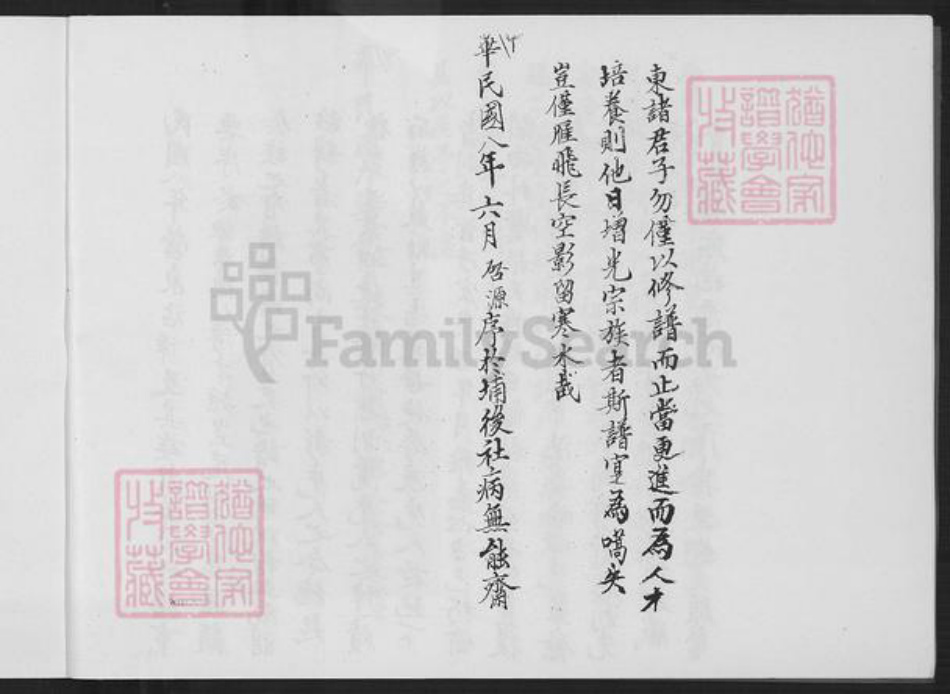 東諸君子勿僅以修譜而止當更進而為人才
培養則他日增光宗族者斯譜寔為嚆矢
豈僅雁飛長空影留寒水哉
中華民國八年六月啓源序於埔後社病無能齋
FamilySearch